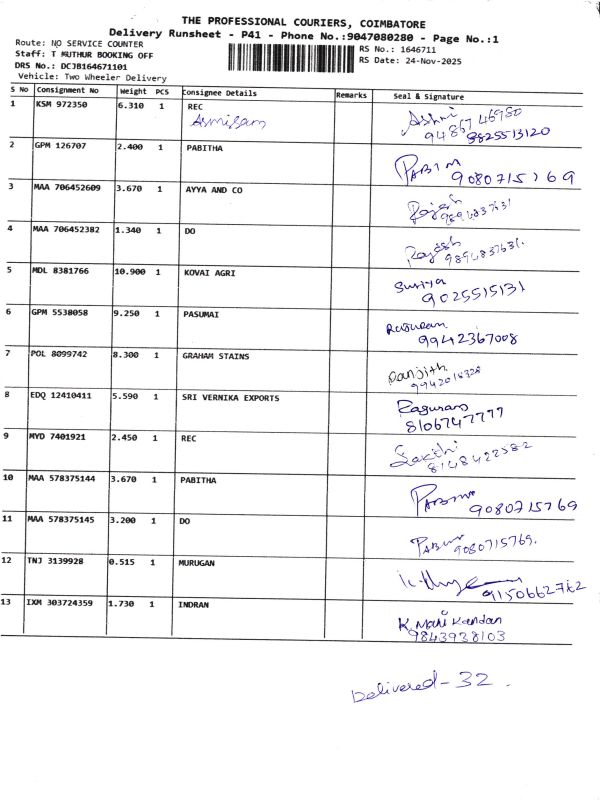 THE PROFESSIONAL COURIERS, COIMBATORE
Delivery Runsheet - P41 - Phone No.:9047080280 - Page No.:1
Route: NO SERVICE COUNTER
Staff: T MUTHUR BOOKING OFF
DRS No.: DCJB164671101
Vehicle: Two Wheeler Delivery
RS No.: 1646711
RS Date: 24-Nov-2025
S No Consignment No Weight PCS Consignee Details Remarks Seal & Signature
1 KSM 972350 6.310 1 REC Ashni
9825513120
2 GPM 126707 2.400 1 PABITHA PABIM
3 MAA 706452609 3.670 1 AYYA AND CO Rajesh
9894837631
4 MAA 706452382 1.340 1 DO Rajesh
9894837631.
5 MDL 8381766 10.900 1 KOVAI AGRI Suriya
9025515131
6 GPM 5538058 9.250 1 PASUMAI Raguram
9942367008
7 POL 8099742 8.300 1 GRAHAM STAINS Ranjith
8 EDQ 12410411 5.590 1 SRI VERNIKA EXPORTS Raguram
8106747777
9 MYD 7401921 2.450 1 REC Sakthi
8148422582
10 MAA 578375144 3.670 1 PABITHA
9080715769
11 MAA 578375145 3.200 1 DO
9080715769.
12 TNJ 3139928 0.515 1 MURUGAN
13 IXM 303724359 1.730 1 INDRAN K. Mani Kandan
9843938103
Delivered - 32.